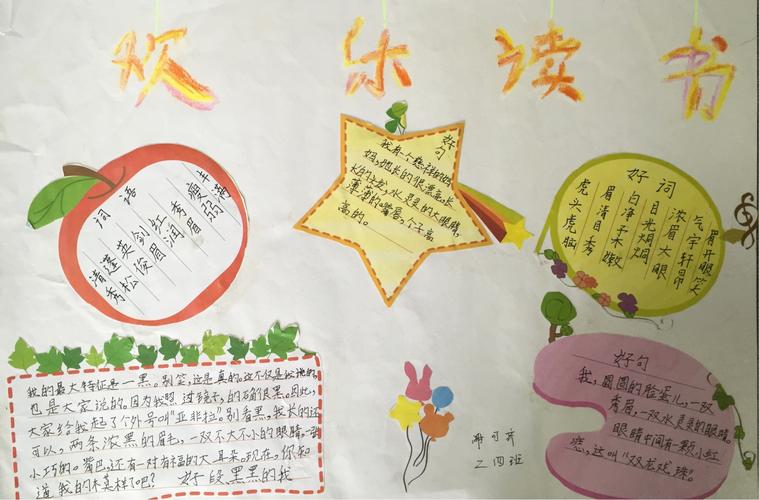 欢乐读书
词语
清秀
蓬松
英俊
红润
秀眉
瘦弱
好句
我有一个慈祥的妈
妈,她长的很漂亮,长
的头发,水灵灵的大眼睛,
薄薄的嘴唇,个子高
高的。
好词
虎头虎脑
眉清目秀
白净柔嫩
目光炯炯
浓眉大眼
气宇轩昂
眉开眼笑
我的最大特征是一黑。别笑,这是真的。这不仅是我说的,
也是大家说的。因为我照过镜子,的确很黑。因此,
大家给我起了个外号叫“亚非拉”。别看黑,我长的还
可以,两条浓黑的眉毛,一双不大不小的眼睛,一
小巧的嘴巴,还有一对有福的大耳朵。现在,你知
道我的什么样了吧? 好段 黑黑的我
好句
我,圆圆的脸蛋儿,一双
秀眉,一双水灵灵的眼睛,
眼睛中间有一颗小红
痣,这叫“双龙戏珠”。
二四班